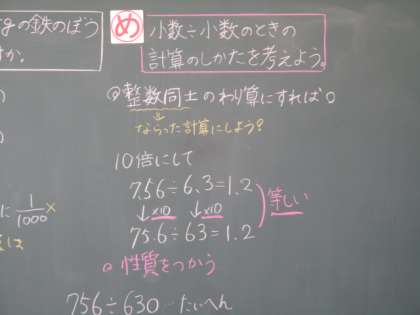 gの鉄のぼう
か。
め
小数÷小数のときの
計算のしかたを考えよう。
整数同士のわり算にすれば○
ならった計算にしよう?
10倍にして
7.56÷6.3=1.2
↓×10 ↓×10
75.6÷63=1.2
等しい
に 1/1000 ×
は
○性質をつかう
756÷630…たいへん